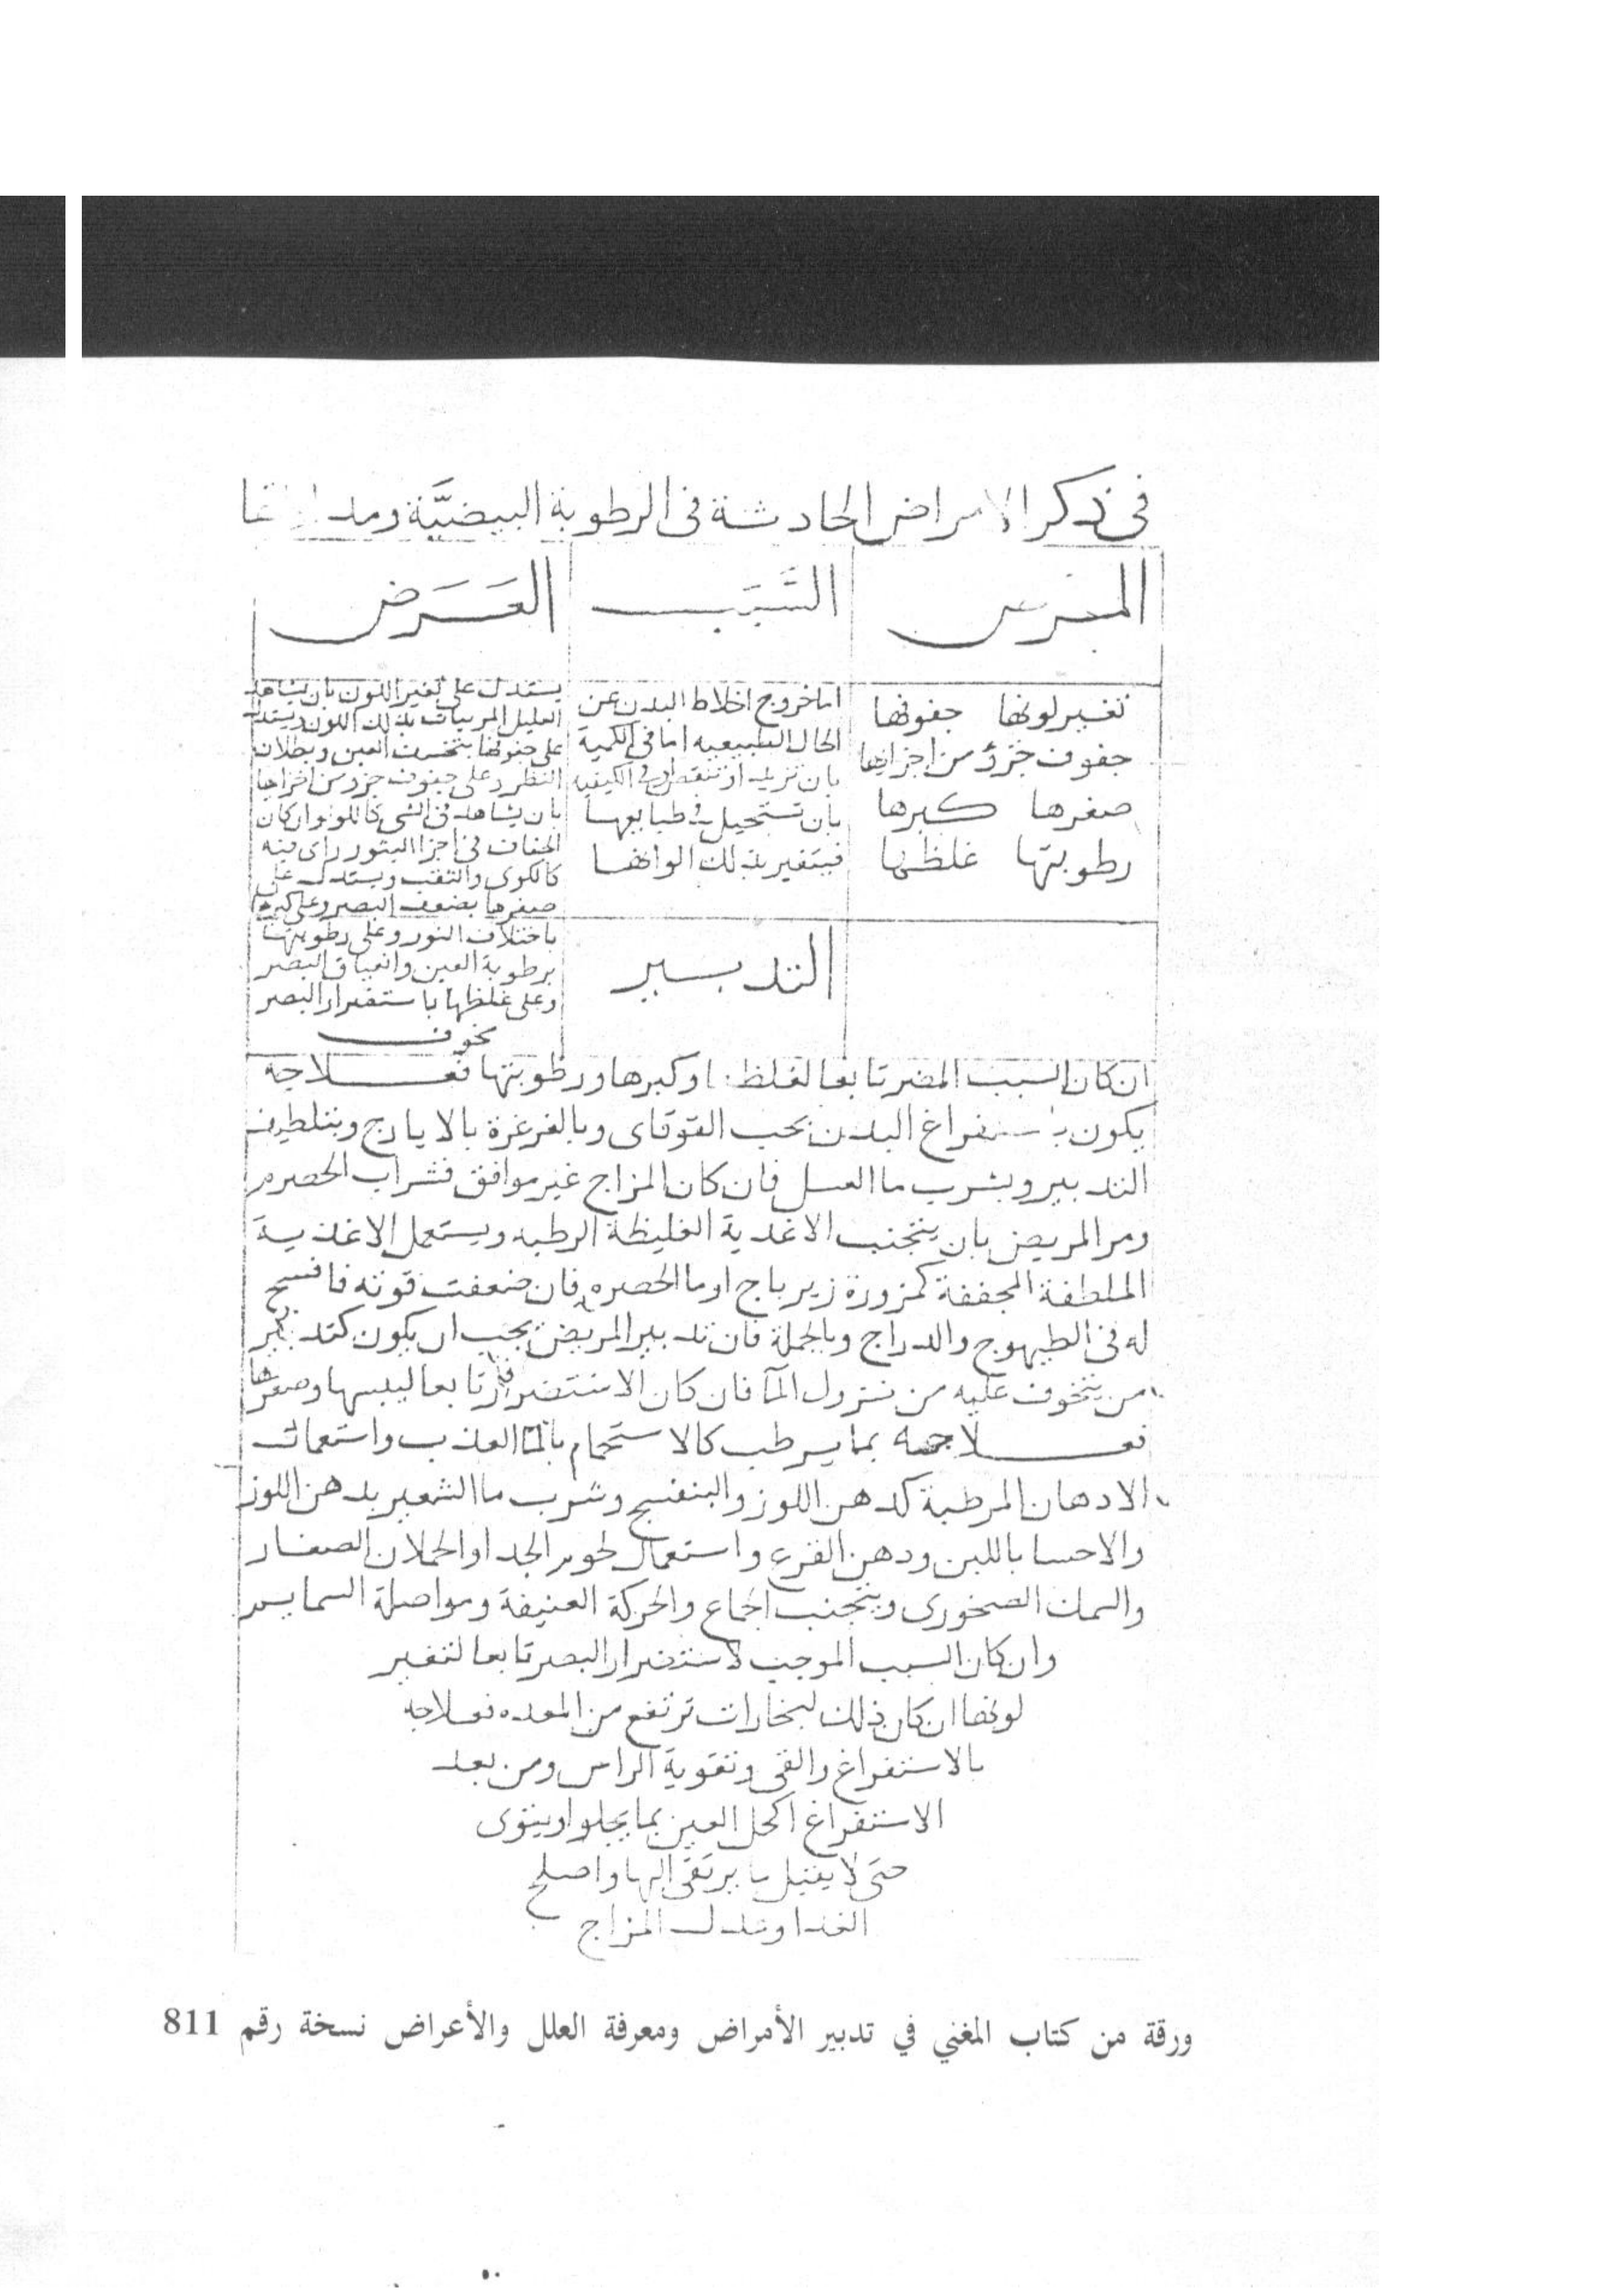 في ذكر الامراض الحادثة في الرطوبة البيضيَّة
المرض
السَّبَب
العَرَض
تغير لونها جفوفها
جفوف جزؤ من اجزايها
صغرها كبرها
رطوبتها غلظها
اما خروج اخلاط البدن عن
الحال الطبيعيه اما في الكمية
بان تزيد او تنقص او في الكيفيه
بان تستحيل في طبايعها
فيتغير بذلك الوانها
يستدل على تغير اللون بان يشاهد
العليل المرييات بذلك اللون ويستدل
على جفوفها بتخسف العين وبطلان
النظر وعلى جفوف جزو من اجزاها
بان يشاهد في الشي كالكوا وان كان
الجفاف في اجزا البثور راى فيه
كالكوى والثقب ويستدل على
صغرها بضعف البصر وعلى كبرها
باختلاف النور وعلى رطوبتها
برطوبة العين البصر
وعلى غلظها باستضرار البصر
التدبير
ان كان السبب المضر تابعا لغلظ او كبرها ورطوبتها فعلاجه
يكون باستفراغ البدن بحب القوقاى وبالغرغرة بالايارج وبتلطيف
التدبير وبشرب ما العسل فان كان المزاج غير موافق فشراب الحصرم
ومر المريض بان يتجنب الاغذية الغليظة الرطبه ويستعمل الاغذية
الملطفة المجففة كمزورة زيرباج او ما الحصرم فان ضعفت قوته فافسح
له في الطيهوج والدراج وبالجملة فان تدبير المريض يجب ان يكون كتدبير
من يتخوف عليه من نزول المآ فان كان الاستضرار تابعا ليبسها وصغرها
فعلاجه بما يرطب كالاستحمام بالمآ العذب واستعمال
الادهان المرطبة كدهن اللوز والبنفسج وشرب ما الشعير بدهن اللوز
والاحسا باللبن ودهن القرع واستعمال لحوم الجدا والحملان الصغار
والسمك الصخورى ويتجنب الجماع والحركة العنيفة ومواصلة السمايم
وان كان السبب الموجب لاستضرار البصر تابعا لتغير
لونها ان كان ذلك لبخارات ترتفع من المعده فعلاجه
بالاستفراغ والقى وتقوية الراس ومن بعد
الاستفراغ اكحل العين بما يجلوا ويقوى
حتى لا يقبل ما يرتقى اليها واصلح
الغدا وعدل المزاج
ورقة من كتاب المغني في تدبير الأمراض ومعرفة العلل والأعراض نسخة رقم 811